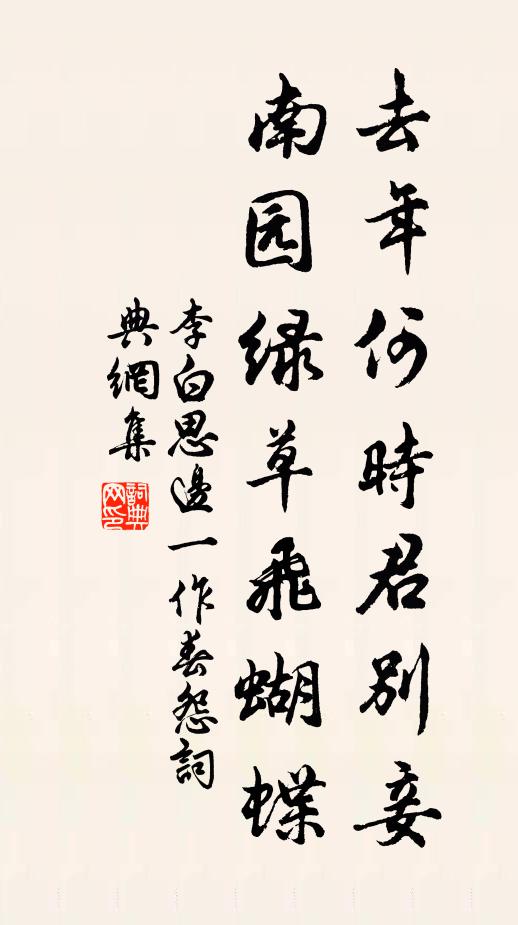 去年何時君別妾
南园绿草飛蝴蝶
李白思邊一作春怨詞
典網集
詞典网印